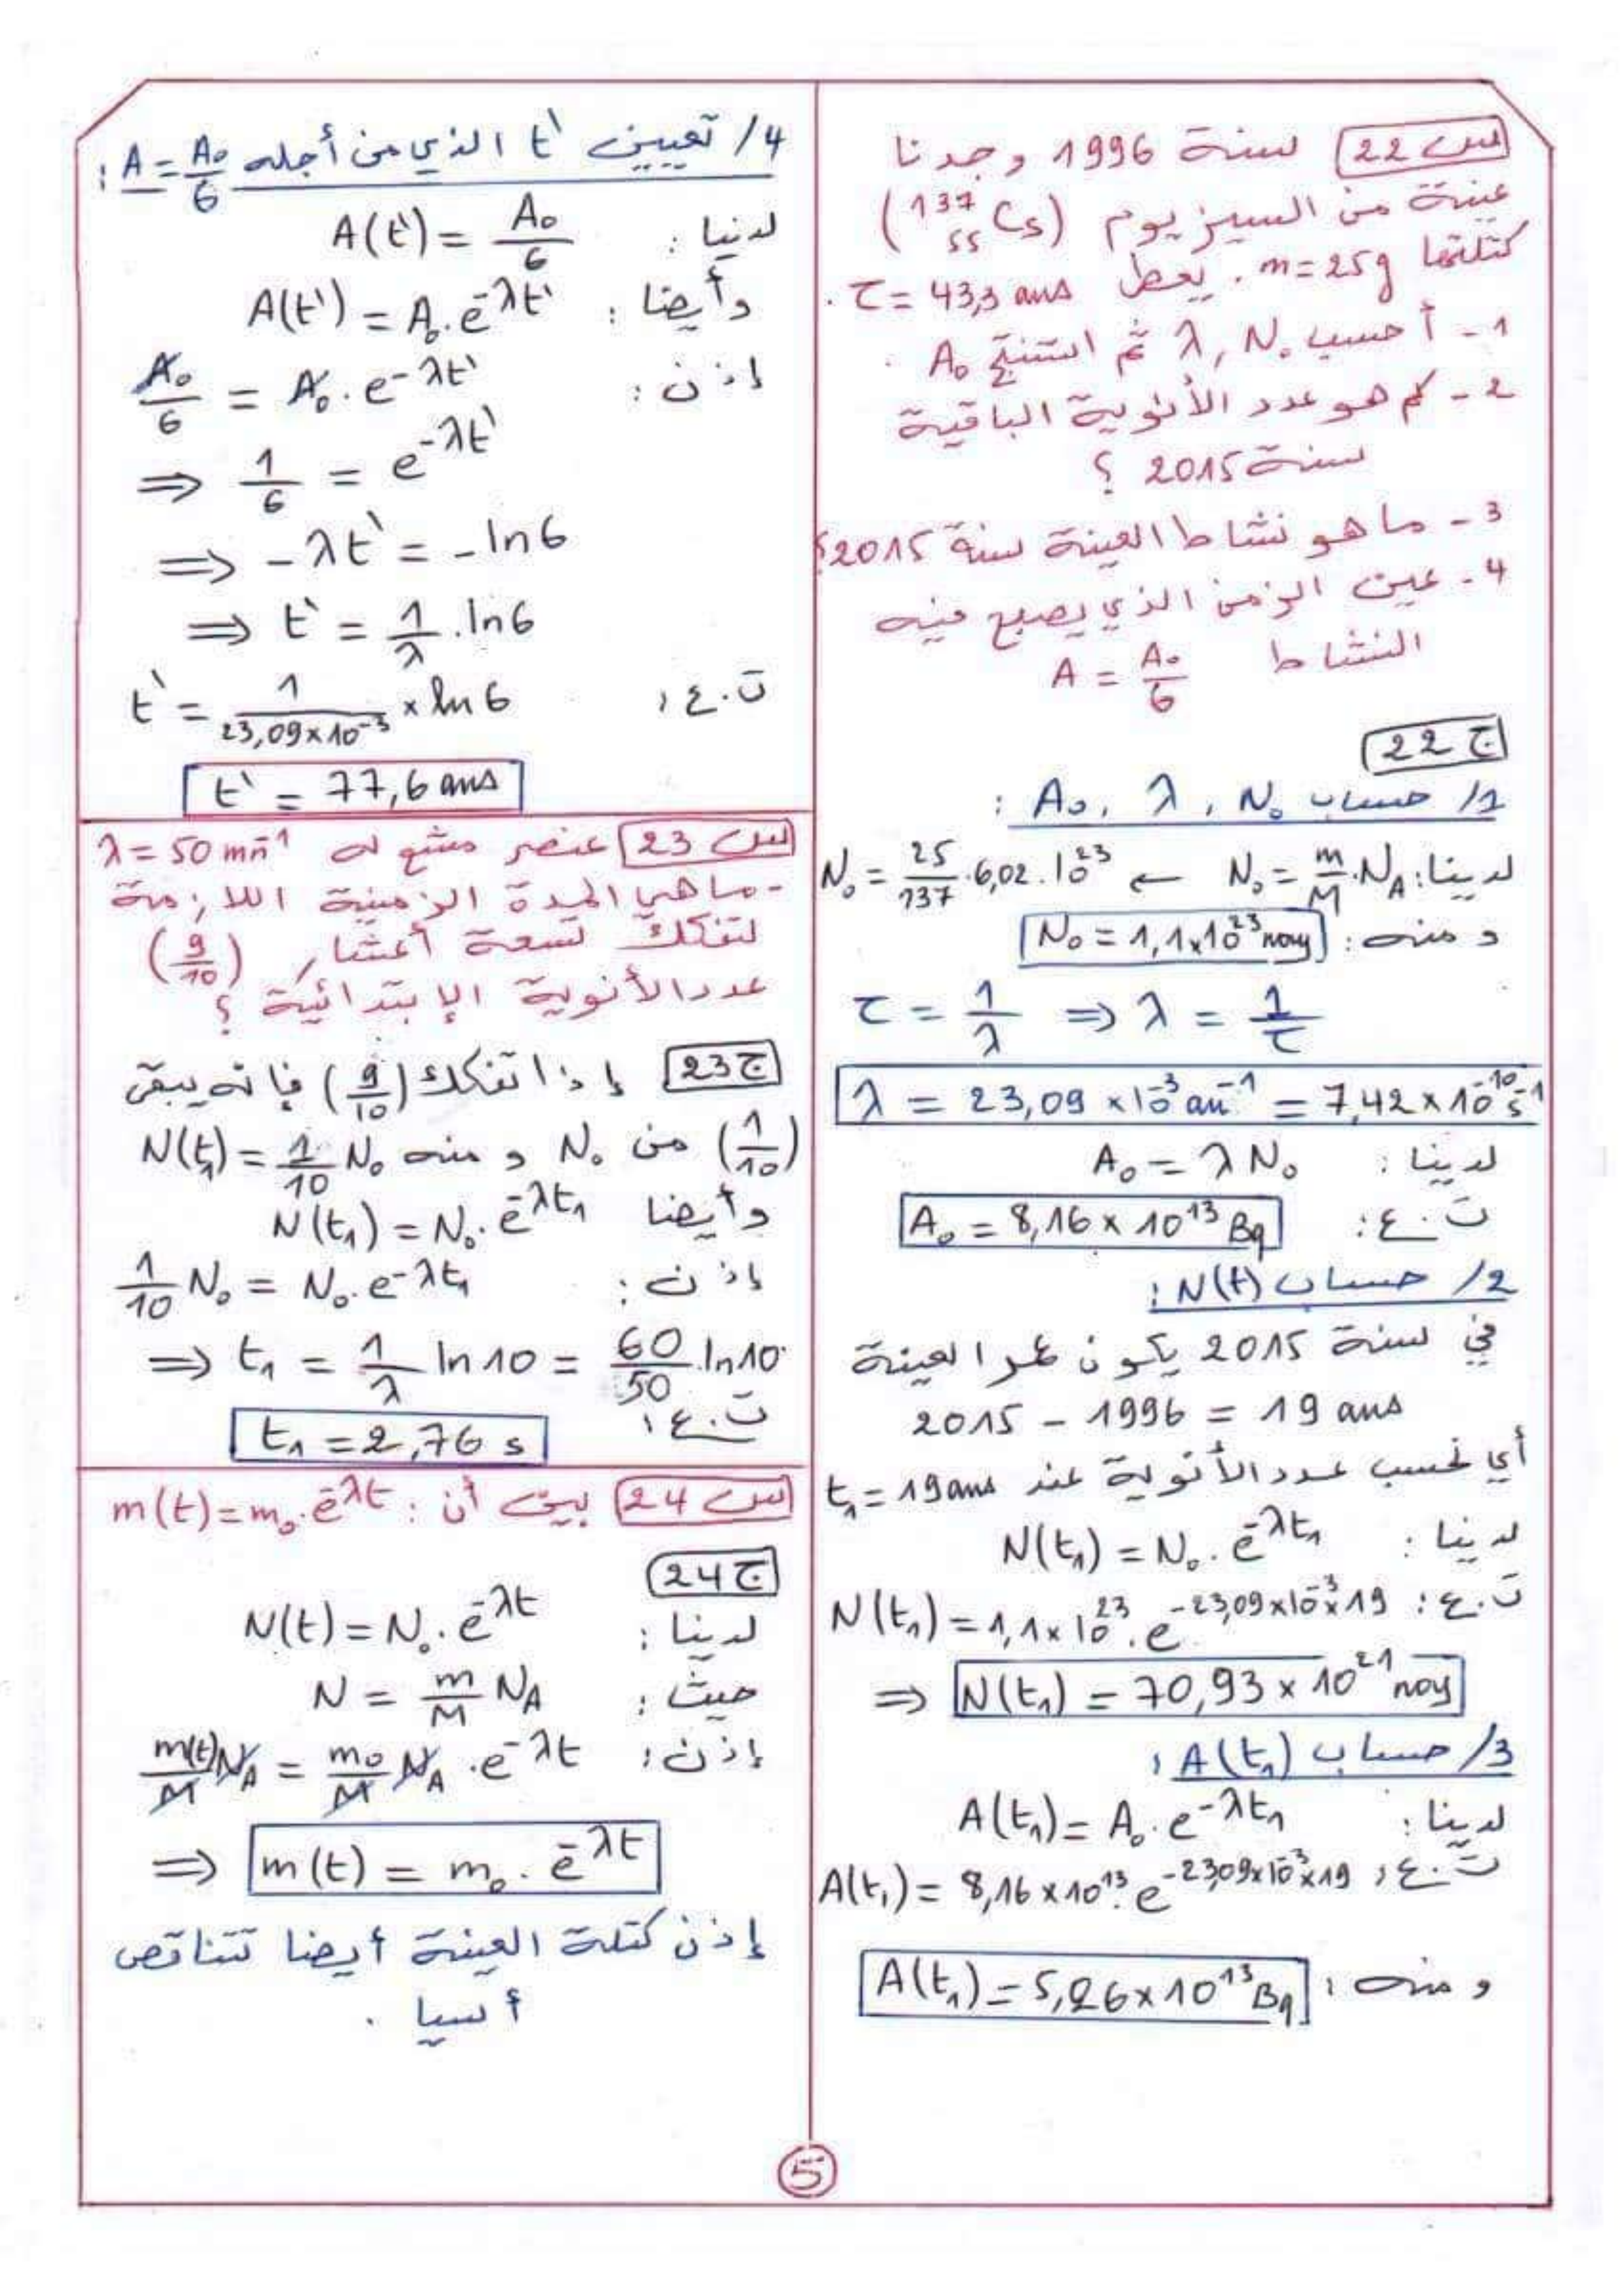 س 22 لسنة 1996 وجدنا
عينة من السيزيوم (¹³⁷₅₅Cs)
كتلتها m=25g. يعطى τ = 43,3 ans.
1 - أحسب N₀ ,λ ثم استنتج A₀.
2 - كم هو عدد الأنوية الباقية
لسنة 2015 ؟
3 - ما هو نشاط العينة سنة 2015؟
4 - عين الزمن الذي يصبح فيه
النشاط A = A₀/6
ج 22
1/ حساب N₀ ، λ ، A₀ :
لدينا: N₀ = m/M . N_A ← N₀ = 25/137 . 6,02 . 10²³
و منه : N₀ = 1,1×10²³ noy
τ = 1/λ ⇒ λ = 1/τ
λ = 23,09 × 10⁻³ an⁻¹ = 7,42 × 10⁻¹⁰ s⁻¹
لدينا : A₀ = λ N₀
ت.ع : A₀ = 8,16 × 10¹³ Bq
2/ حساب N(t) :
في سنة 2015 يكون عمر العينة
2015 - 1996 = 19 ans
أي نحسب عدد الأنوية عند t₁ = 19 ans
لدينا : N(t₁) = N₀ . e^-λt₁
ت.ع : N(t₁) = 1,1 × 10²³ . e^-23,09×10⁻³×19
⇒ N(t₁) = 70,93 × 10²¹ noy
3/ حساب A(t₁) :
لدينا : A(t₁) = A₀ . e^-λt₁
ت.ع : A(t₁) = 8,16 × 10¹³ . e^-23,09×10⁻³×19
و منه : A(t₁) = 5,26 × 10¹³ Bq
4/ تعيين t' الذي من أجله A = A₀/6 :
لدنيا : A(t') = A₀/6
وأيضا : A(t') = A₀ . e^-λt'
إذن : A₀/6 = A₀ . e^-λt'
⇒ 1/6 = e^-λt'
⇒ - λt' = - ln6
⇒ t' = 1/λ . ln6
ت.ع : t' = 1/(23,09×10⁻³) × ln 6
t' = 77,6 ans
س 23 عنصر مشع له λ = 50 mn⁻¹
- ما هي المدة الزمنية اللازمة
لتفكك تسعة أعشار (9/10)
عدد الأنوية الإبتدائية ؟
ج 23 إذا تفكك (9/10) فإنه يبقى
(1/10) من N₀ و منه N(t₁) = 1/10 N₀
وأيضا N(t₁) = N₀ . e^-λt₁
إذن : 1/10 N₀ = N₀ . e^-λt₁
⇒ t₁ = 1/λ ln 10 = 60/50 . ln10
ت.ع : t₁ = 2,76 s
س 24 بين أن : m(t) = m₀ . e^-λt
ج 24
لدينا : N(t) = N₀ . e^-λt
حيث : N = m/M N_A
إذن : m(t)/M N_A = m₀/M N_A . e^-λt
⇒ m(t) = m₀ . e^-λt
إذن كتلة العينة أيضا تتناقص
أسيا .
5